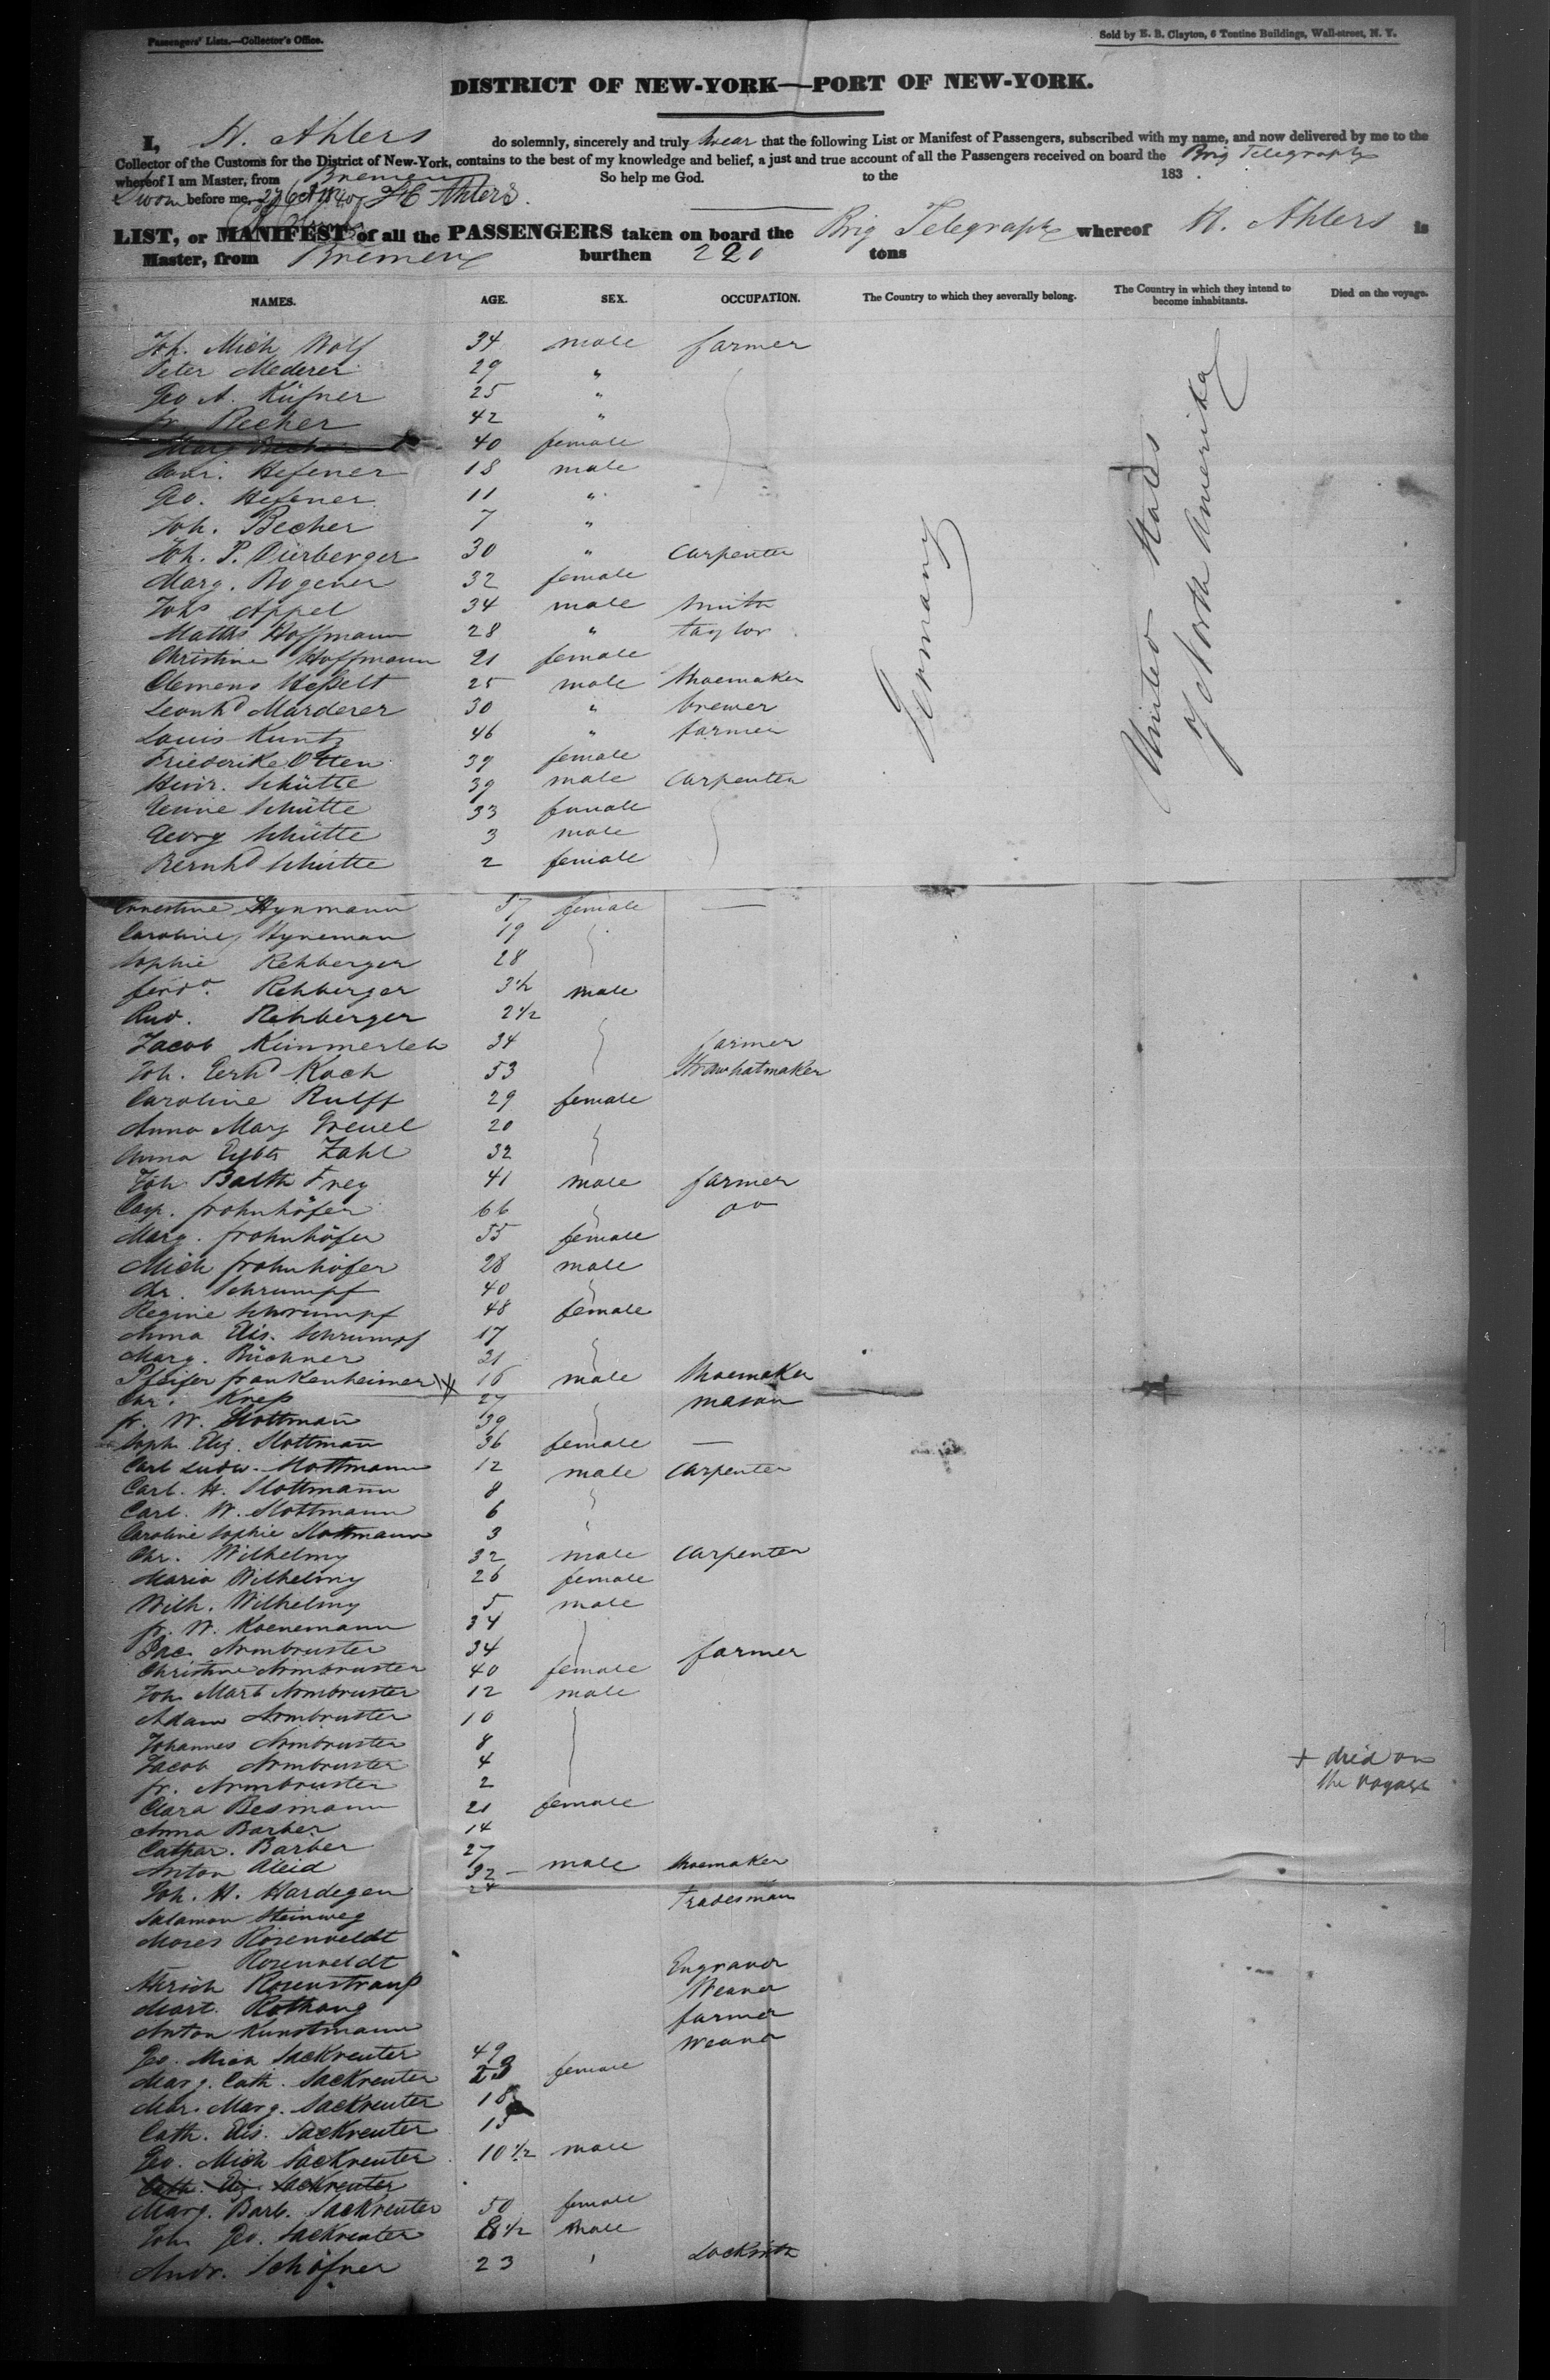 Passengers' Lists.—Collector's Office.
Sold by E. B. Clayton, 6 Tontine Buildings, Wall-street, N. Y.
DISTRICT OF NEW-YORK—PORT OF NEW-YORK.
I, H. Ahlers do solemnly, sincerely and truly swear that the following List or Manifest of Passengers, subscribed with my name, and now delivered by me to the
Collector of the Customs for the District of New-York, contains to the best of my knowledge and belief, a just and true account of all the Passengers received on board the Brig Telegraph
whereof I am Master, from Bremen So help me God. to the 183 .
Sworn before me, 27 Oct 1840 H Ahlers.
LIST, or MANIFEST of all the PASSENGERS taken on board the Brig Telegraph whereof H. Ahlers is
Master, from Bremen burthen 220 tons
NAMES. AGE. SEX. OCCUPATION. The Country to which they severally belong. The Country in which they intend to become inhabitants. Died on the voyage.
Joh. Mich Wolf 34 male farmer
Peter Mederer 29 "
Geo A. Küfner 25 "
fr. Becher 42 "
Marg 40 female
Conr. Hefener 18 male
Geo. Hefener 11 "
Joh. Becher 7 "
Joh. P. Dierberger 30 " Carpenter
Marg. Bogener 32 female
Johs Appel 34 male Smith
Matths Hoffmann 28 " taylor
Christine Hoffmann 21 female
Clemens Heßelt 25 male Shoemaker
Leonhd Marderer 30 " brewer
Louis Kuntz 46 " farmer
Friederike Otten 39 female
Heinr. Schütte 39 male Carpenter
Schütte 33 female
Georg Schütte 3 male
Bernhd Schütte 2 female
Germany
United States
of North Amerika
Ernestine Hynmann 57 female —
Caroline Hyneman 19
Sophie Rehberger 28
ferdd. Rehberger 3½ male
Rud. Rehberger 2½
Jacob Kimmerleh 34 farmer
Joh. Gerhd Koch 53 Strawhatmaker
Caroline Rulff 29 female
Anna Marg Greuel 20
Anna Zahl 32
Joh Balth Frey 41 male farmer
Casp. frohnhöfer 66 do
Marg. frohnhöfer 55 female
Mich frohnhöfer 28 male
Chr. Schrumpf 40
Regine Schrumpf 48 female
Anna Elis. Schrumpf 17
Marg. Büchner 21
Pfeifer frankenheimer 16 male Shoemaker
Chr. Kreß 27 mason
fr. W. Slottmann 39
Soph. Eliz. Slottmann 36 female —
Carl Ludw. Slottmann 12 male Carpenter
Carl. H. Slottmann 8
Carl. W. Slottmann 6
Caroline Sophie Slottmann 3
Chr. Wilhelmy 32 male Carpenter
Maria Wilhelmy 26 female
Wilh. Wilhelmy 5 male
fr. W. Koenemann 34
Armbruster 34 farmer
Christine Armbruster 40 female
Joh. Mart Armbruster 12 male
Adam Armbruster 10
Johannes Armbruster 8
Jacob Armbruster 4 + died on
fr. Armbruster 2 the voyage
Clara Besmann 21 female
Anna Barber 14
Cathar. Barber 27
Anton Aleid 32 — male Shoemaker
Joh. H. Hardegen 24 Tradesman
Salamon Steinweg
Moses Rosenveldt
— Rosenveldt Engraver
Rosenstrauß Weaver
Mart. Rothang farmer
Anton Kunstmann Weaver
Geo. Mich Sackreuter 49
Marg. Cath. Sackreuter 23 female
Mar. Marg. Sackreuter 18
Cath. Elis. Sackreuter 15
Geo. Mich Sackreuter 10½ male
Cath. Eliz. Sackreuter
Marg. Barb. Sackreuter 50 female
Joh Geo. Sackreuter 8½ male
Andr. Schöfner 23 Locksmith